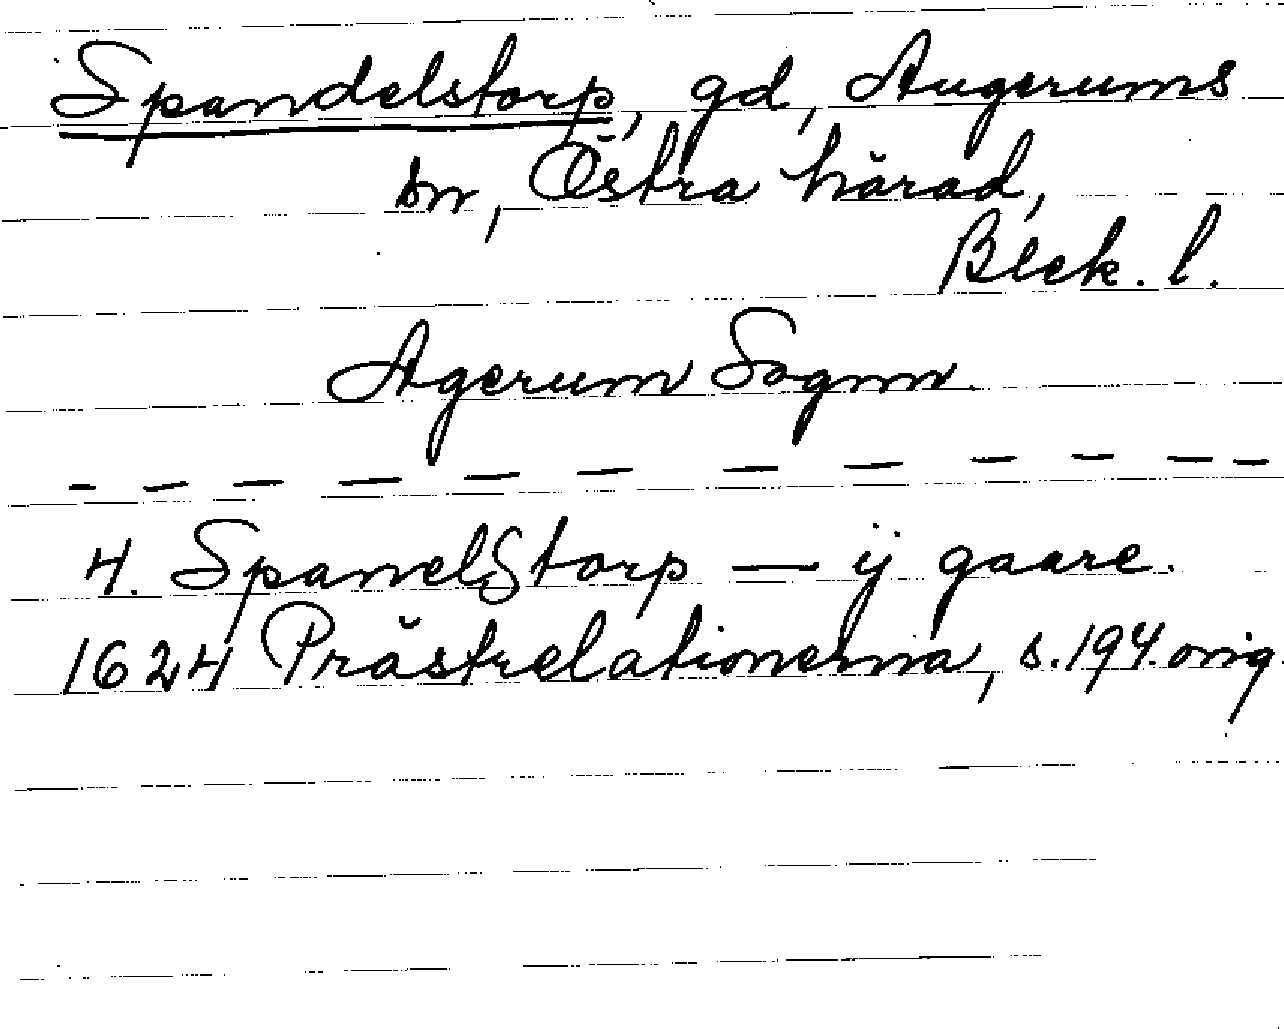 Spandelstorp, gd, Augerums
sn, Östra härad,
Blek. l.
Agerum Sognn.
— — — — — — — — — — —
4. SpanelStorp — ij gaare.
1624 Prästrelationerna, s. 194. orig.